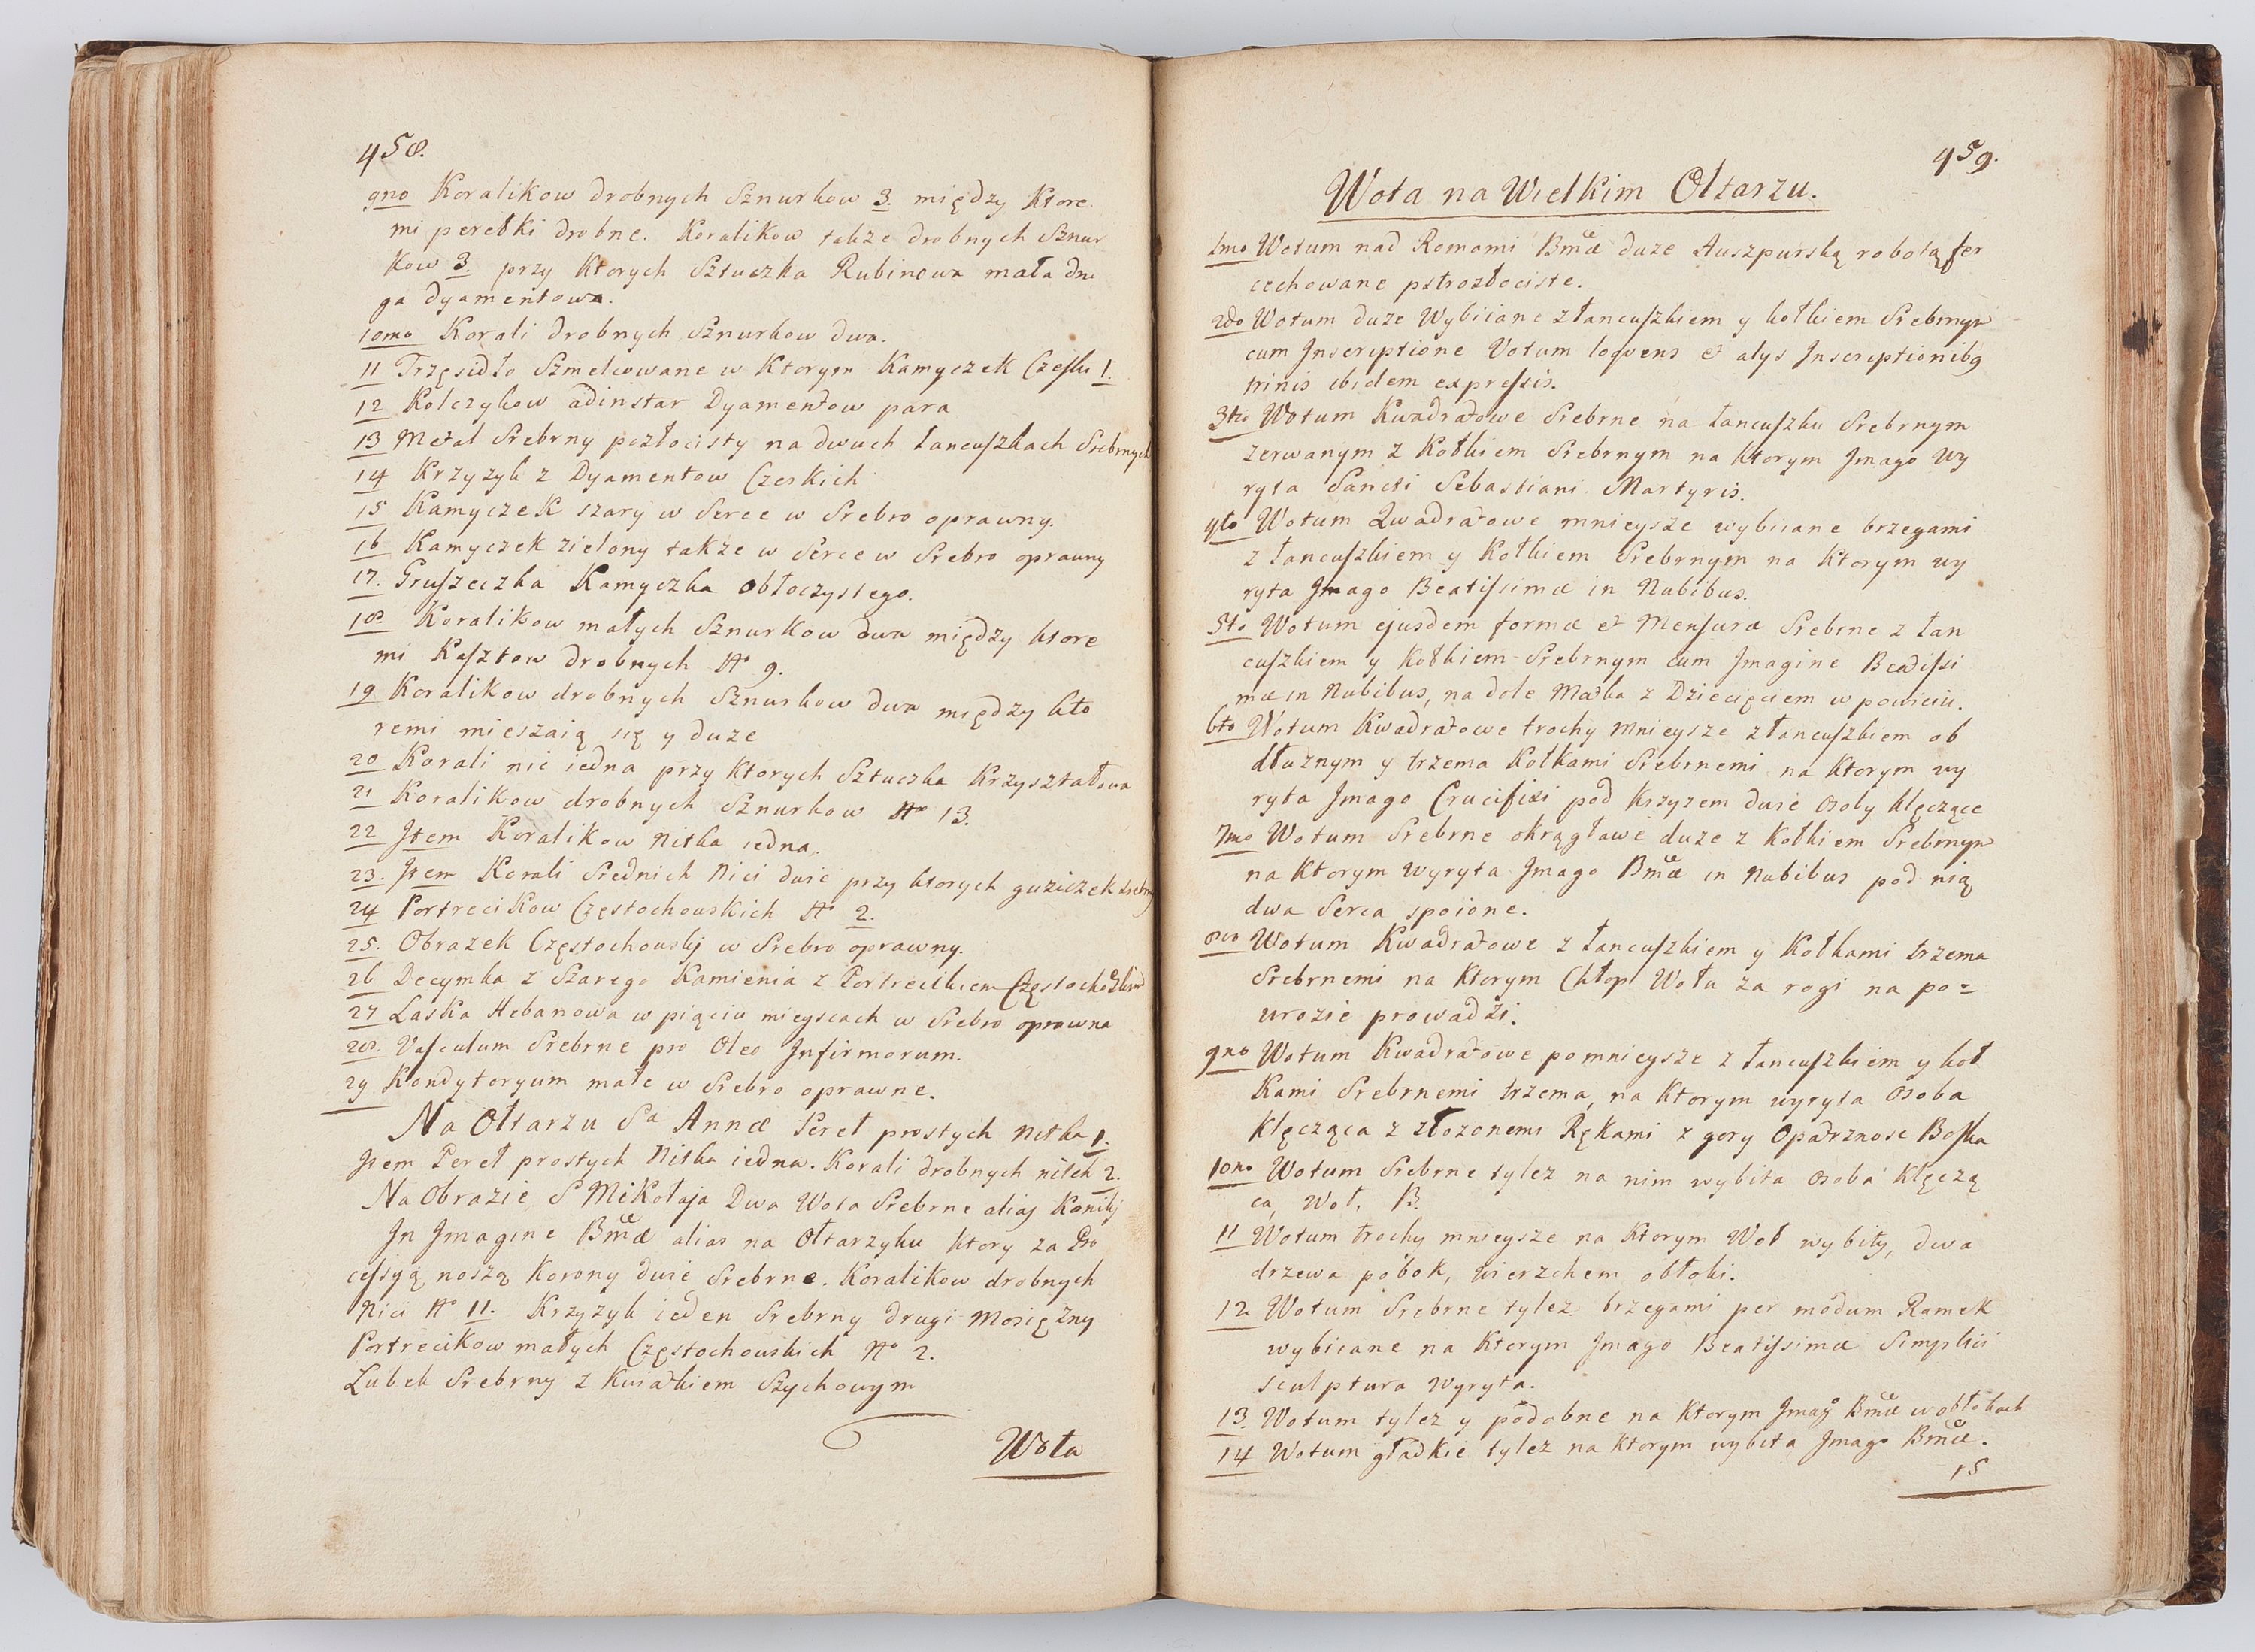 458.
9no Koralikow drobnych Sznurkow 3. między Ktore
mi perełki drobne. Koralikow także drobnych Sznur
Kow 3. przy Ktorych Sztuczka Rubinowa mała dru
ga dyamentowa.
10mo Korali drobnych Sznurkow dwa.
11 Trzęsidło Szmelcowane w Ktorym Kamyczek Czeski 1.
12 Kolczykow adinstar Dyamentow para
13 Metal Srebrny pozłocisty na dwuch łancuszkach Srebrnych
14 Krzyzyk z Dyamentow Czeskich
15 Kamyczek szary w Serce w Srebro oprawny.
16 Kamyczek zielony także w Serce w Srebro oprawny
17. Gruszeczka Kamyczka obłoczystego.
18. Koralikow małych Sznurkow dwa między ktore
mi Kasztow drobnych No 9.
19 Koralikow drobnych Sznurkow dwa między kto
remi mieszaią się y duze
20 Korali nic iedna przy Ktorych Sztuczka Krzyształowa
21 Koralikow drobnych Sznurkow No 13.
22 Item Koralikow Nitka iedna.
23. Item Korali Srednich Nici dwie przy ktorych guziczek srebrny
24 Portrecikow Częstochowskich No 2.
25. Obrazek Częstochowskj w Srebro oprawny.
26 Decymka z Szarego Kamienia z Portrecikiem
27 Laska Hebanowa w pięciu mieyscach w Srebro oprawna
28. Vasculum Srebrne pro Oleo Infirmorum.
29 Kondytoryum małe w Srebro oprawne.
Na Ołtarzu Sa Annæ Pereł prostych Nitka 1.
Item Pereł prostych Nitka iedna. Korali drobnych nitek 2.
Na Obrazie S Mikołaja Dwa Wota Srebrne alias Konikj
In Imagine Bmæ alias na Ołtarzyku ktory za Pro
cessyą noszą Korony dwie Srebrne. Koralikow drobnych
Nici No 11. Krzyzyk ieden Srebrny drugi Mosięzny
Portrecikow małych Częstochowskich No 2.
Lubek Srebrny z Kwiatkiem Szychowym
Wota
459.
Wota na Wielkim Ołtarzu.
1mo Wotum nad Ramami Bmæ duze Auszpurską robotą fer
cechowane pstrozłociste.
2do Wotum duze Wybiiane z łancuszkiem y kołkiem Srebrnym
cum Inscriptione Votum loqvens & alys Inscriptionibq
trinis ibidem expressis.
3tio Wotum Kwadratowe Srebrne na łancuszku Srebrnym
zerwanym z Kołkiem Srebrnym na Ktorym Imago Wy
ryta Sancti Sebastiani Martyris.
4to Wotum Qwadratowe mnieysze wybiiane brzegami
z łancuszkiem y Kołkiem Srebrnym na Ktorym wy
ryta Imago Beatissimæ in Nubibus.
5to Wotum ejusdem formæ & Mensuræ Srebrne z łan
cuszkiem y kołkiem Srebrnym cum Imagine Beatissi
mæ in Nubibus, na dole Matka z Dziecięciem w powiciu.
6to Wotum Kwadratowe trochy mnieysze z łancuszkiem ob
dłuznym y trzema Kołkami Srebrnemi na Ktorym wy
ryta Imago Crucifixi pod Krzyzem dwie Osoby klęczące
7mo Wotum Srebrne okrągławe duze z kołkiem Srebrnym
na Ktorym wyryta Imago Bmæ in Nubibus pod nią
dwa Serca spoione.
8vo Wotum Kwadratowe z łancuszkiem y Kołkami trzema
Srebrnemi na Ktorym Chłop Wołu za rogi na po=
wrozie prowadzi.
9no Wotum Kwadratowe pomnieysze z łancuszkiem y koł
Kami Srebrnemi trzema, na Ktorym wyryta Osoba
Klęcząca z złozonemi Rękami z gory Opatrznosc Boska
10mo Wotum Srebrne tylez na nim wybita osoba Klęczą
ca, Wot. B.
11 Wotum trochy mnieysze na Ktorym Woł wybity, dwa
drzewa pobok, wierzchem obłoki.
12. Wotum Srebrne tylez brzegami per modum Ramek
wybiiane na Ktorym Imago Beatissimæ Simplici
sculptura wyryta.
13. Wotum tylez y podobne na Ktorym Imago Bmæ w obłokach
14 Wotum gładkie tylez na Ktorym wybita Imago Bmæ.
15